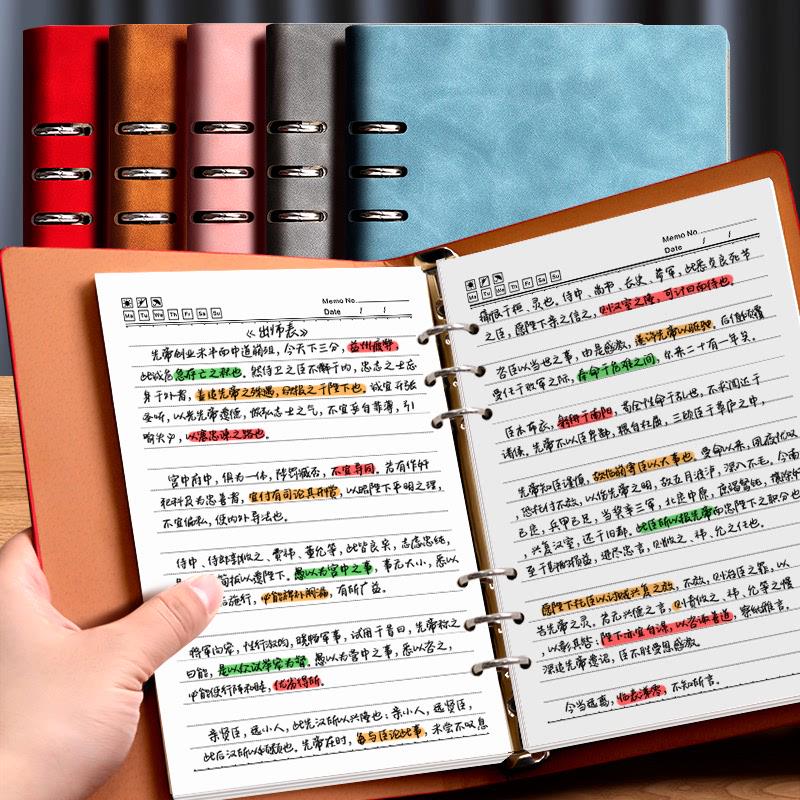 Memo No.
Mo Tu We Th Fr Sa Su
Date / /
《出师表》
先帝创业未半而中道崩殂，今天下三分，益州疲弊，
此诚危急存亡之秋也。然侍卫之臣不懈于内，忠志之士忘
身于外者，盖追先帝之殊遇，欲报之于陛下也。诚宜开张
圣听，以光先帝遗德，恢弘志士之气，不宜妄自菲薄，引
喻失义，以塞忠谏之路也。
宫中府中，俱为一体，陟罚臧否，不宜异同。若有作奸
犯科及为忠善者，宜付有司论其刑赏，以昭陛下平明之理，
不宜偏私，使内外异法也。
侍中、侍郎郭攸之、费祎、董允等，此皆良实，志虑忠纯，
简拔以遗陛下。愚以为宫中之事，事无大小，悉以
后施行，必能裨补阙漏，有所广益。
将军向宠，性行淑均，晓畅军事，试用于昔日，先帝称之
曰能，是以众议举宠为督。愚以为营中之事，悉以咨之，
必能使行阵和睦，优劣得所。
亲贤臣，远小人，此先汉所以兴隆也；亲小人，远贤臣，
此后汉所以倾颓也。先帝在时，每与臣论此事，未尝不叹息
Memo No.
Mo Tu We Th Fr Sa Su
Date / /
痛恨于桓、灵也。侍中、尚书、长史、参军，此悉贞良死节
之臣，愿陛下亲之信之，则汉室之隆，可计日而待也。
咨臣以当世之事，由是感激，遂许先帝以驱驰。后值倾覆
受任于败军之际，奉命于危难之间，尔来二十有一年矣。
臣本布衣，躬耕于南阳，苟全性命于乱世，不求闻达于
诸侯。先帝不以臣卑鄙，猥自枉屈，三顾臣于草庐之中，
先帝知臣谨慎，故临崩寄臣以大事也。受命以来，夙夜忧叹
，恐托付不效，以伤先帝之明，故五月渡泸，深入不毛。今南
已定，兵甲已足，当奖率三军，北定中原，庶竭驽钝，攘除奸
，兴复汉室，还于旧都。此臣所以报先帝而忠陛下之职分也
至于斟酌损益，进尽忠言，则攸之、祎、允之任也。
愿陛下托臣以讨贼兴复之效，不效，则治臣之罪，以
告先帝之灵。若无兴德之言，则责攸之、祎、允等之慢
，以彰其咎；陛下亦宜自谋，以咨诹善道，察纳雅言，
深追先帝遗诏，臣不胜受恩感激。
今当远离，临表涕零，不知所言。